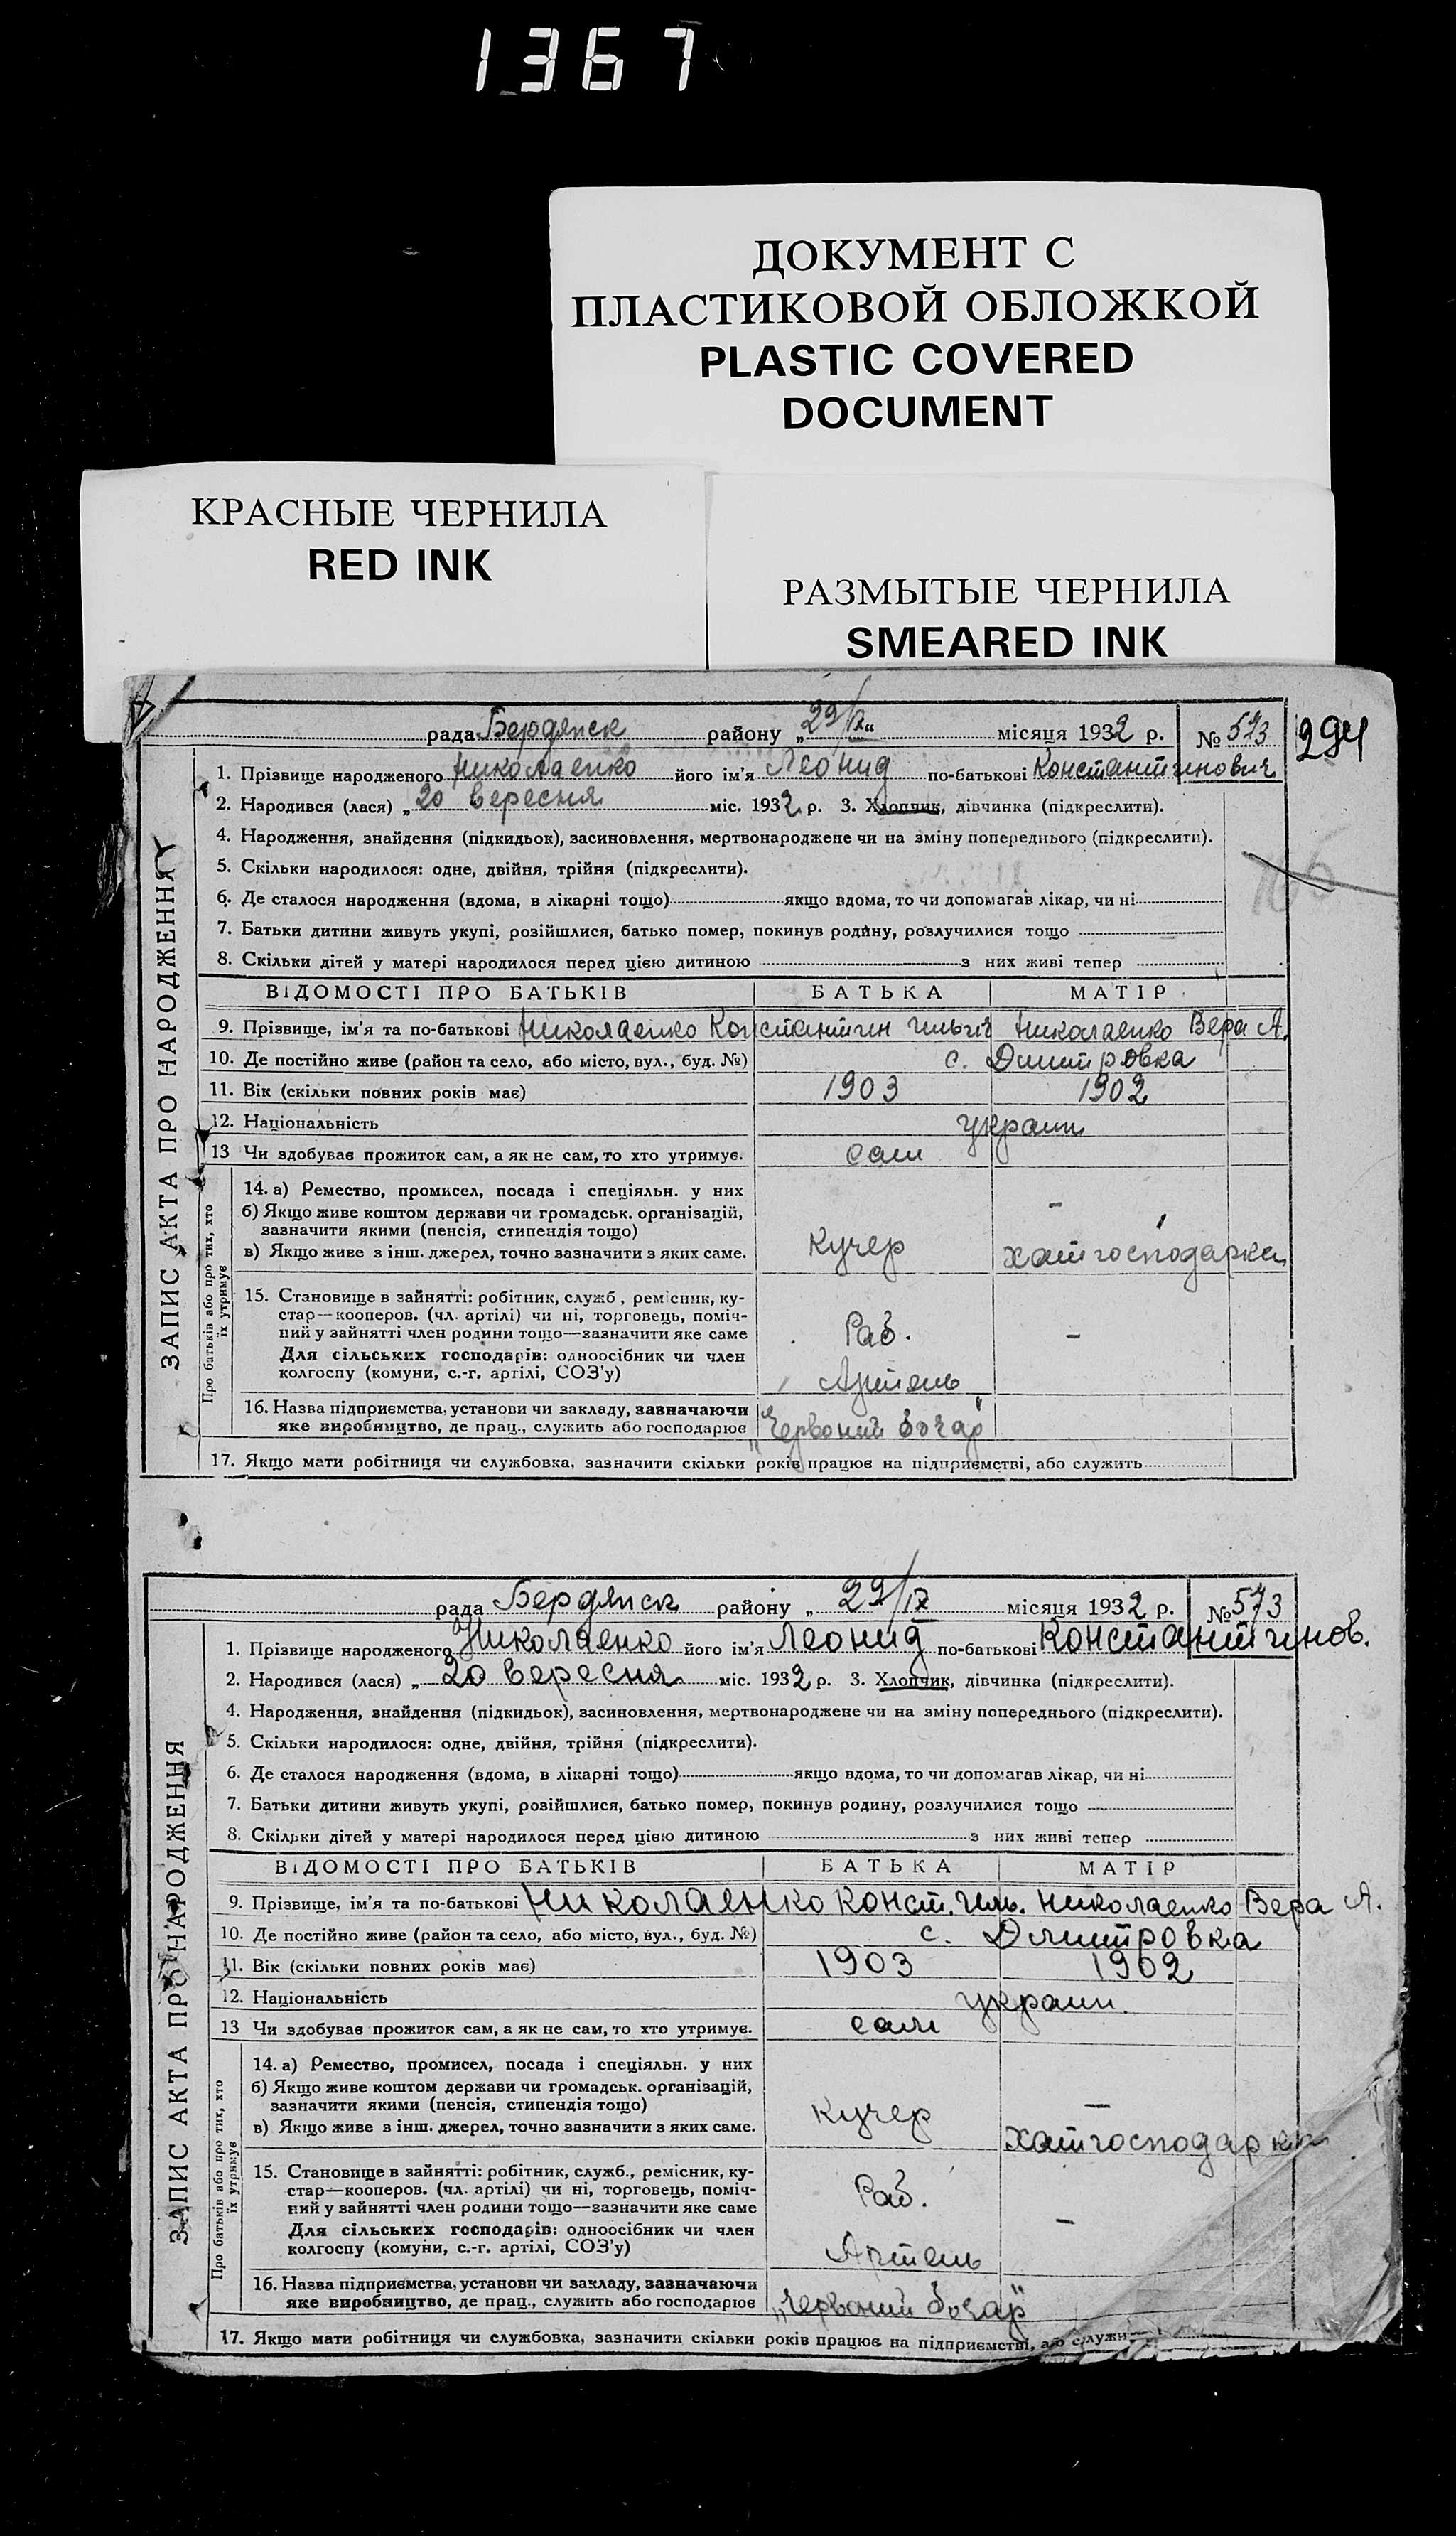 1367
ДОКУМЕНТ С
ПЛАСТИКОВОЙ ОБЛОЖКОЙ
PLASTIC COVERED
DOCUMENT
КРАСНЫЕ ЧЕРНИЛА
RED INK
РАЗМЫТЫЕ ЧЕРНИЛА
SMEARED INK
рада Бердянск району „ 29/IX “ місяця 1932 р. № 573 294
ЗАПИС АКТА ПРО НАРОДЖЕННЯ
1. Прізвище народженого Николаенко його ім'я Леонид по-батькові Константинович
2. Народився (лася) „ 20 вересня міс. 1932 р. 3. Хлопчик, дівчинка (підкреслити).
4. Народження, знайдення (підкидьок), засиновлення, мертвонароджене чи на зміну попереднього (підкреслити).
5. Скільки народилося: одне, двійня, трійня (підкреслити).
6. Де сталося народження (вдома, в лікарні тощо) якщо вдома, то чи допомагав лікар, чи ні
7. Батьки дитини живуть укупі, розійшлися, батько помер, покинув родину, розлучилися тощо
8. Скільки дітей у матері народилося перед цією дитиною з них живі тепер
ВІДОМОСТІ ПРО БАТЬКІВ БАТЬКА МАТІР
9. Прізвище, ім'я та по-батькові Николаенко Константин Ильич Николаенко Вера А.
10. Де постійно живе (район та село, або місто, вул., буд. №) с. Дмитровка
11. Вік (скільки повних років має) 1903 1902
12. Національність украин
13 Чи здобував прожиток сам, а як не сам, то хто утримує. сам
Про батьків або про тих, хто
їх утримує
14. а) Ремество, промисел, посада і спеціяльн. у них
б) Якщо живе коштом держави чи громадськ. організацій, –
зазначити якими (пенсія, стипендія тощо)
в) Якщо живе з інш. джерел, точно зазначити з яких саме. кучер хатгосподарка
15. Становище в зайнятті: робітник, служб., ремісник, ку-
стар—кооперов. (чл. артілі) чи ні, торговець, поміч-
ний у зайнятті член родини тощо—зазначити яке саме Раб. –
Для сільських господарів: одноосібник чи член
колгоспу (комуни, с.-г. артілі, СОЗ'у) Артель
16. Назва підприємства, установи чи закладу, зазначаючи
яке виробництво, де прац., служить або господарює „Червоний бочар"
17. Якщо мати робітниця чи службовка, зазначити скільки років працює на підприємстві, або служить
рада Бердянск району „ 29/IX місяця 1932 р. № 573
ЗАПИС АКТА ПРО НАРОДЖЕННЯ
1. Прізвище народженого Николаенко його ім'я Леонид по-батькові Константинов.
2. Народився (лася) „ 20 вересня міс. 1932 р. 3. Хлопчик, дівчинка (підкреслити).
4. Народження, знайдення (підкидьок), засиновлення, мертвонароджене чи на зміну попереднього (підкреслити).
5. Скільки народилося: одне, двійня, трійня (підкреслити).
6. Де сталося народження (вдома, в лікарні тощо) якщо вдома, то чи допомагав лікар, чи ні
7. Батьки дитини живуть укупі, розійшлися, батько помер, покинув родину, розлучилися тощо
8. Скільки дітей у матері народилося перед цією дитиною з них живі тепер
ВІДОМОСТІ ПРО БАТЬКІВ БАТЬКА МАТІР
9. Прізвище, ім'я та по-батькові Николаенко Конст. Иль. Николаенко Вера А.
10. Де постійно живе (район та село, або місто, вул., буд. №) с. Дмитровка
11. Вік (скільки повних років має) 1903 1902
12. Національність украин.
13 Чи здобував прожиток сам, а як не сам, то хто утримує. сам
Про батьків або про тих, хто
їх утримує
14. а) Ремество, промисел, посада і спеціяльн. у них
б) Якщо живе коштом держави чи громадськ. організацій, –
зазначити якими (пенсія, стипендія тощо)
в) Якщо живе з інш. джерел, точно зазначити з яких саме. кучер хатгосподарка
15. Становище в зайнятті: робітник, служб., ремісник, ку-
стар—кооперов. (чл. артілі) чи ні, торговець, поміч-
ний у зайнятті член родини тощо—зазначити яке саме Раб. –
Для сільських господарів: одноосібник чи член
колгоспу (комуни, с.-г. артілі, СОЗ'у) Артель
16. Назва підприємства, установи чи закладу, зазначаючи
яке виробництво, де прац., служить або господарює „Червоний бочар"
17. Якщо мати робітниця чи службовка, зазначити скільки років працює на підприємстві, або служи